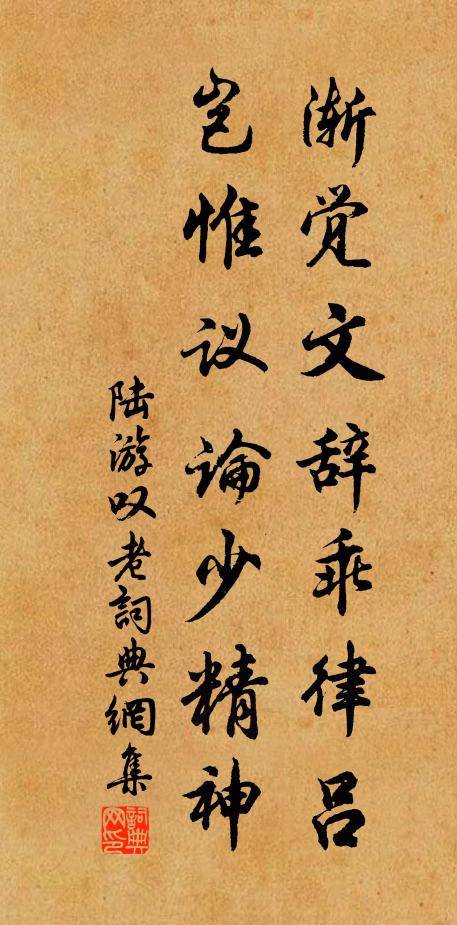 渐觉文辞乖律吕
岂惟议论少精神
陆游叹老詞典網集
詞典网印